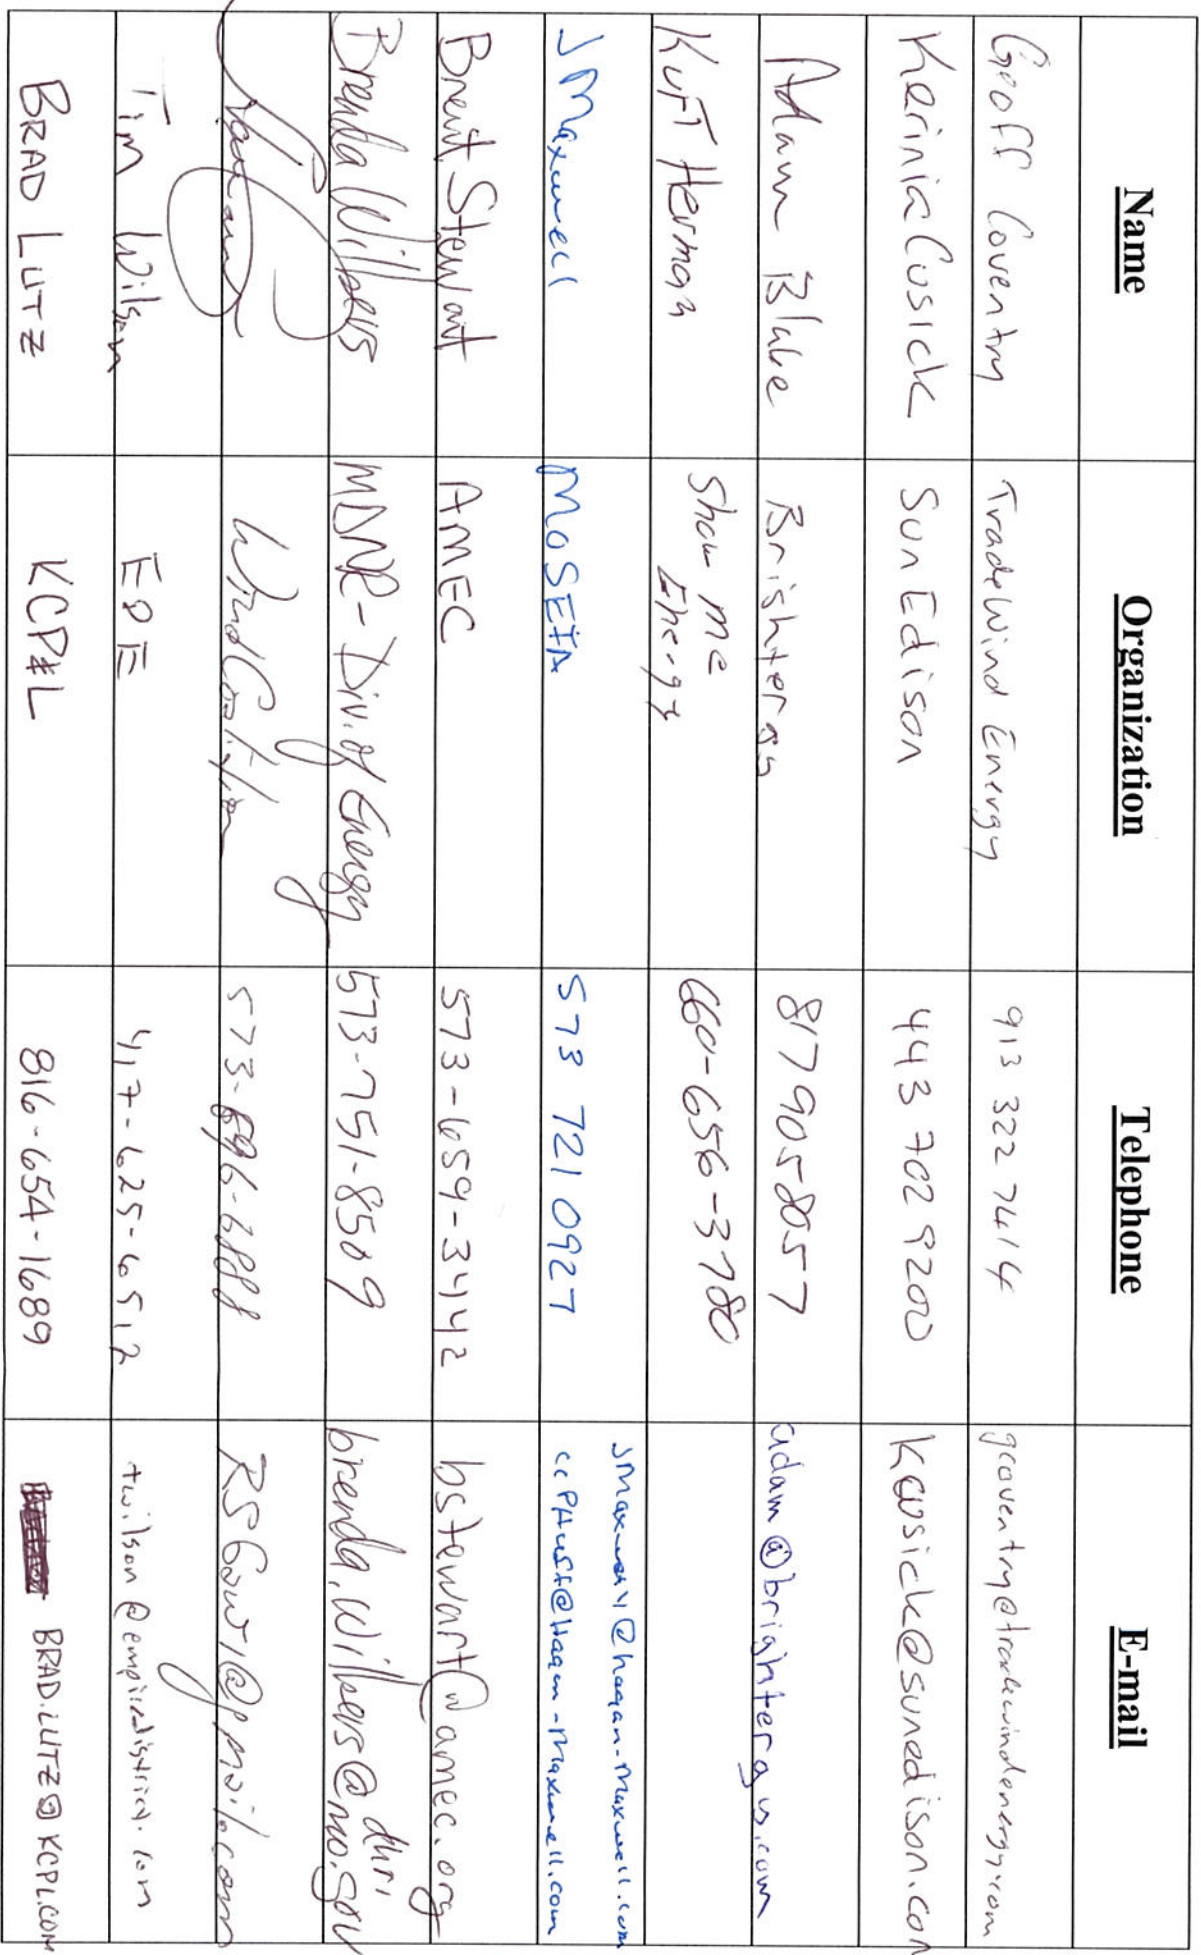 Name Organization Telephone E-mail
Geoff Coventry TradeWind Energy 913 322 7414 gcoventry@tradewindenergy.com
Kerinia Cusick SunEdison 443 702 9200 kcusick@sunedison.com
Adam Blake Brightergy 817 905 8057 adam@brightergy.com
Kurt Herman Show me Energy 660-656-3780
J Maxwell MOSEIA 573 721 0927 JMaxwell@hagan-maxwell.com
cc PHust@Hagan-Maxwell.com
Brent Stewart AMEC 573-659-3442 bstewart@amec.org
Brenda Wilbers MDNR - Div. of Energy 573-751-8509 brenda.wilbers@dnr.mo.gov
Wind Coalition 573-696-6888
Tim Wilson EDE 417-625-6512 twilson@empiredistrict.com
BRAD LUTZ KCP&L 816-654-1689 BRAD.LUTZ@KCPL.COM